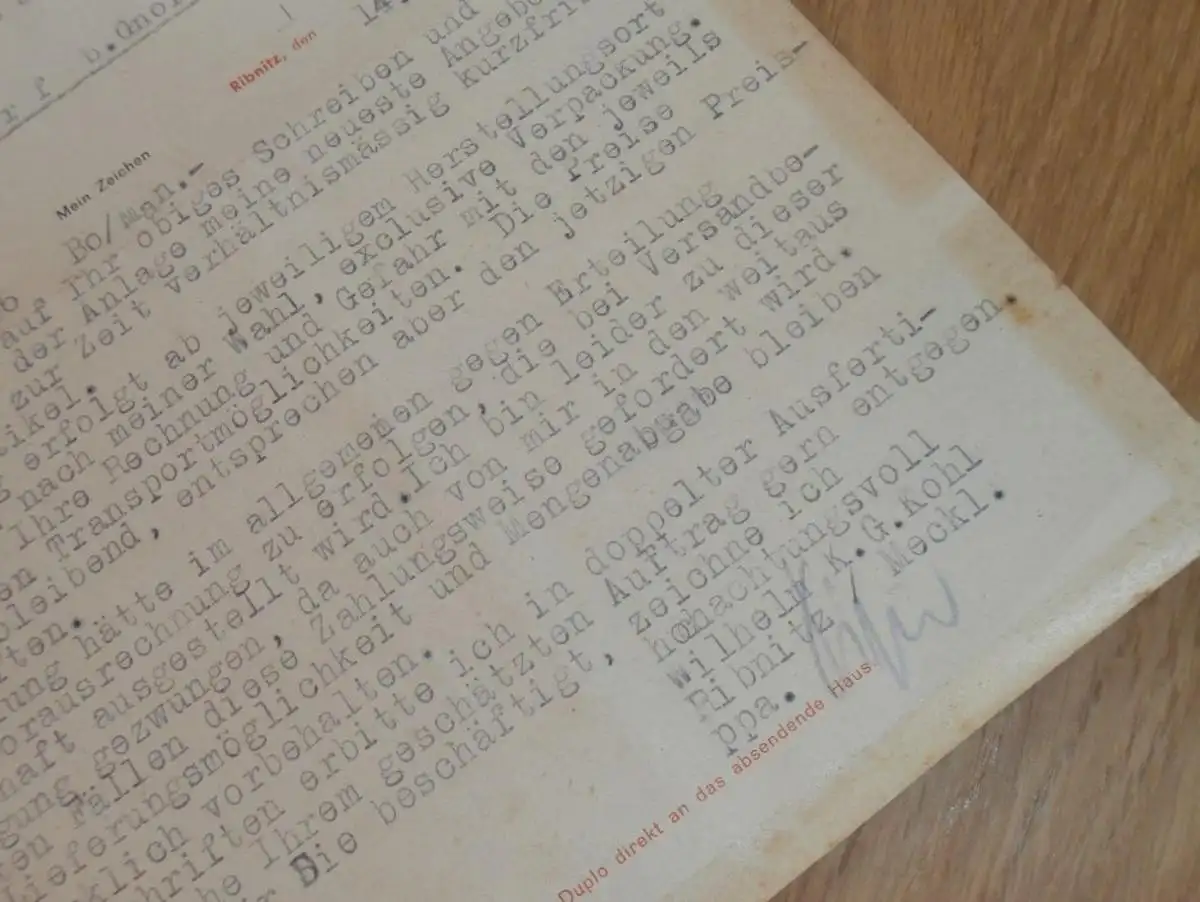 r f b.Gnoi
Ribnitz, den 14.
Mein Zeichen
Bo/Man.-
auf Ihr obiges Schreiben und
der Anlage meine neueste Angebo
zur Zeit verhältnismässig kurzfri
ikel.
erfolgt ab jeweiligem Herstellungsort
nach meiner Wahl, exclusive Verpackung.
Ihre Rechnung und Gefahr mit den jeweils
en Transportmöglichkeiten. Die Preise
bleibend, entsprechen aber den jetzigen Preis-
ften.
lung hätte im allgemeinen gegen Erteilung
orausrechnung zu erfolgen, die bei Versandbe-
haft ausgestellt wird. Ich bin leider zu dieser
gung gezwungen, da auch von mir in den weitaus
en Fällen diese Zahlungsweise gefordert wird.
ieferungsmöglichkeit und Mengenabgabe bleiben
klich vorbehalten.
chriften erbitte ich in doppelter Ausferti-
he Ihrem geschätzten Auftrag gern entgegen.
r Sie beschäftigt, zeichne ich
hochachtungsvoll
Wilhelm K.G.Kohl
Ribnitz / Meckl.
ppa.
Duplo direkt an das absendende Haus.